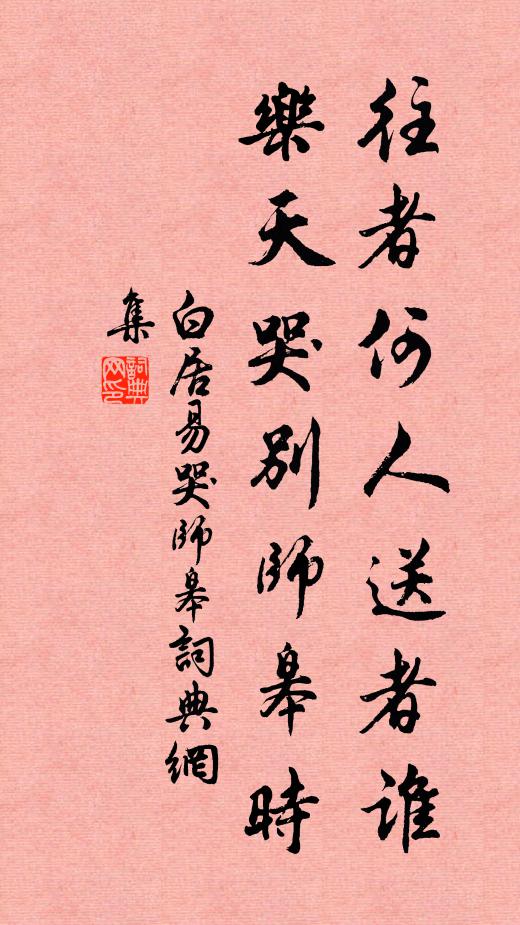 往者何人送者誰
樂天哭別師皋時
白居易哭師皋詞典網
集
詞典
网印